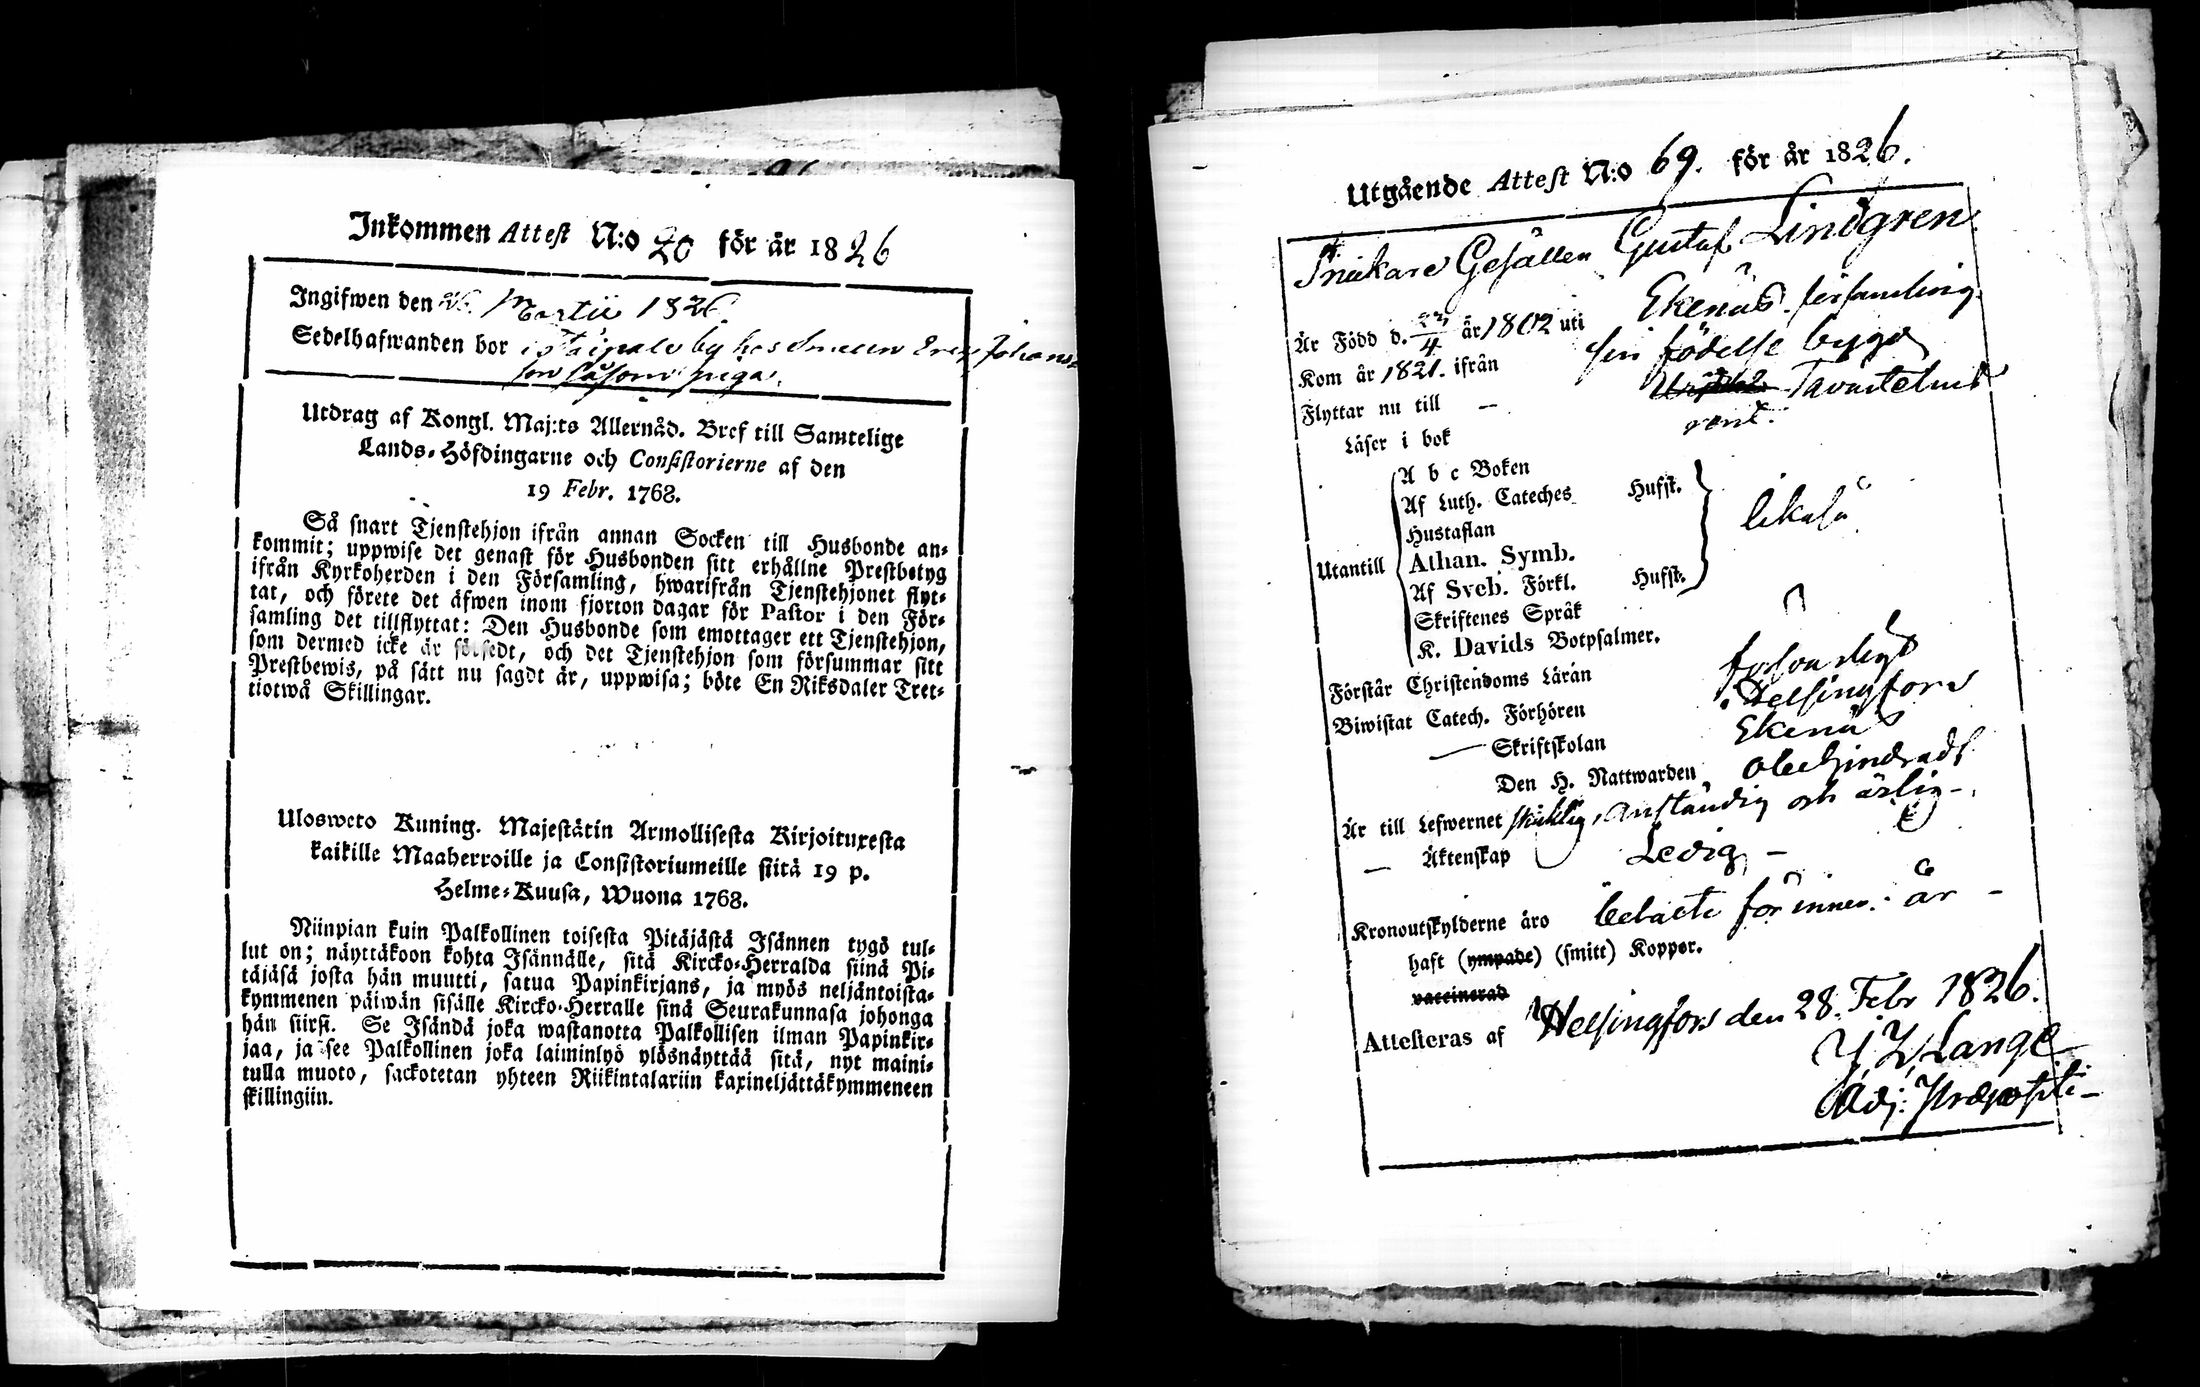 Inkommen Attest N:o 20 för år 1826
Ingifwen den 26. Martii 1826
Sedelhafwanden bor i Taipale by hos Smeden Johans-
son såsom piga.
Utdrag af Kongl. Maj:ts Allernåd. Bref till Samtelige
Lands-Höfdingarne och Consistorierne af den
19 Febr. 1768.
Så snart Tjenstehjon ifrån annan Socken till Husbonde an-
kommit; uppwise det genast för Husbonden sitt erhållne Prestbetyg
ifrån Kyrkoherden i den Församling, hwarifrån Tjenstehjonet flyt-
tat, och förete det äfwen inom fjorton dagar för Pastor i den För-
samling det tillflyttat: Den Husbonde som emottager ett Tjenstehjon,
som dermed icke är försedt, och det Tjenstehjon som försummar sitt
Prestbewis, på sätt nu sagdt är, uppwisa; böte En Riksdaler Tret-
tiotwå Skillingar.
Ulosweto Kuning. Majestätin Armollisesta Kirjoituxesta
kaikille Maaherroille ja Consistoriumeille siitä 19 p.
Helme-Kuusa, Wuona 1768.
Niinpian kuin Palkollinen toisesta Pitäjästä Isännen tygö tul-
lut on; näyttäkoon kohta Isännälle, sitä Kircko-Herralda siinä Pi-
täjäsä josta hän muutti, satua Papinkirjans, ja myös neljäntoista-
kymmenen päiwän sisälle Kircko-Herralle sinä Seurakunnasa johonga
hän siirsi. Se Isändä joka wastanotta Palkollisen ilman Papinkir-
jaa, ja see Palkollinen joka laiminlyö ylösnäyttää sitä, nyt maini-
tulla muoto, sackotetan yhteen Riikintalariin kaxineljättäkymmeneen
skillingiin.
Utgående Attest N:o 69. för år 1826.
Snickare Gesällen Gustaf Lindgren
Är Född d. 23/4 år 1802 uti Ekenäs församling
Kom år 1821. ifrån sin födelse bygd
Flyttar nu till — Tavastehus
Läser i bok rent.
A b c Boken
Af Luth. Cateches Hufst.
Hustaflan
Utantill Athan. Symb. likaså
Af Sveb. Förkl. Hufst.
Skriftenes Språk
K. Davids Botpsalmer.
Förstår Christendoms Läran försvarligt
Biwistat Catech. Förhören i Helsingfors
— Skriftskolan Ekenäs
Den H. Nattwarden obehindradt
Är till Lefwernet skicklig, anständig och ärlig –
— Äktenskap Ledig –
Kronoutskylderne äro betalte för innev. år –
haft (ympade) (smitt) Koppor.
vaccinerad
Attesteras af Helsingfors den 28. Febr 1826.
Lange
Adj: Præpositi –